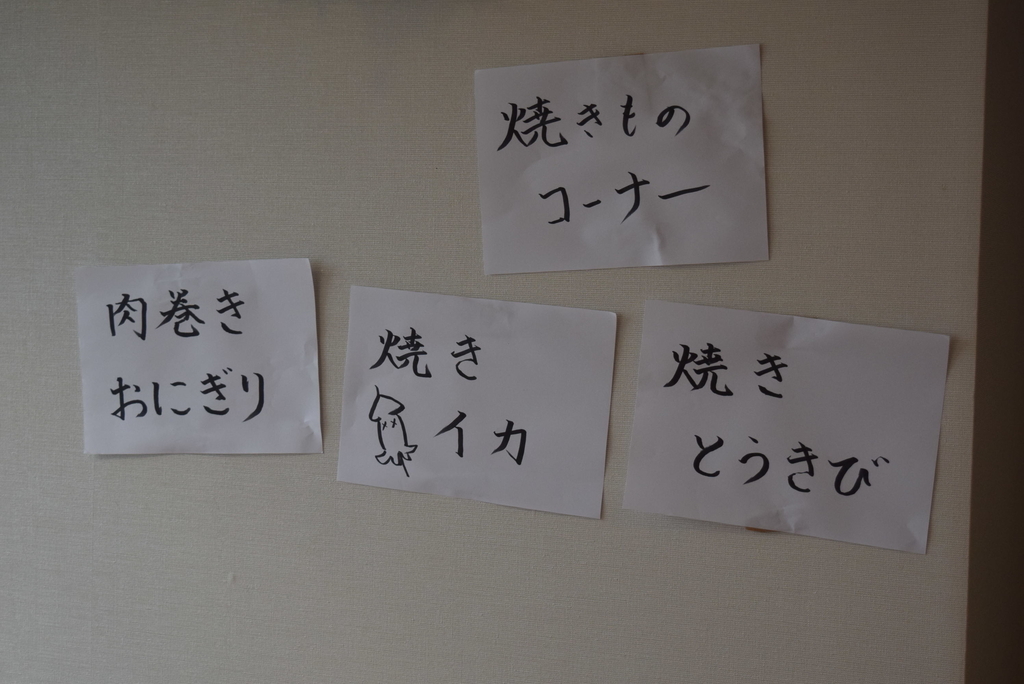 焼きもの
コーナー
肉巻き
おにぎり
焼き
イカ
焼き
とうきび